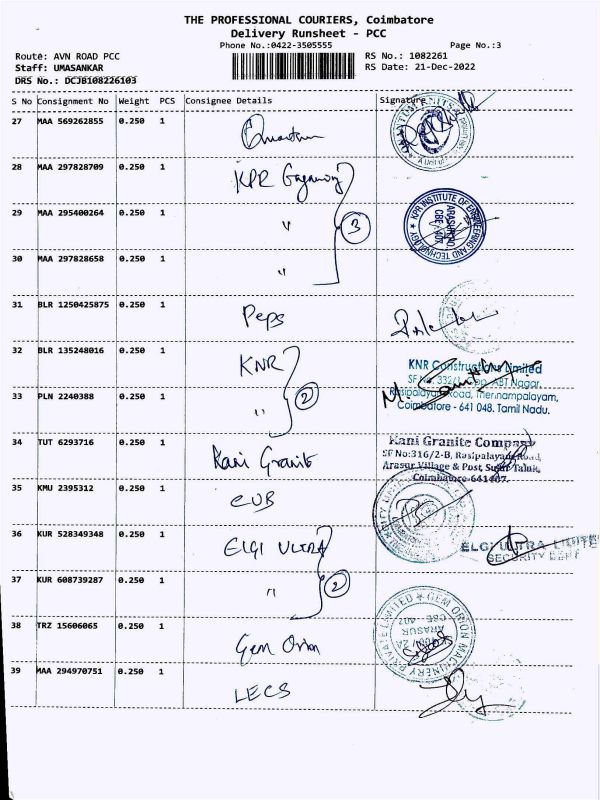 THE PROFESSIONAL COURIERS, Coimbatore
Delivery Runsheet - PCC
Phone No.:0422-3505555
Page No.:3
Route: AVN ROAD PCC
RS No.: 1082261
Staff: UMASANKAR
RS Date: 21-Dec-2022
DRS No.: DCJB108226103
S No Consignment No Weight PCS Consignee Details Signature
27 MAA 569262855 0.250 1
28 MAA 297828709 0.250 1 KPR
29 MAA 295400264 0.250 1 "
3
KPR INSTITUTE OF ENGINEERING AND TECHNOLOGY
ARASUR(PO)
CBE-407
30 MAA 297828658 0.250 1 "
31 BLR 1250425875 0.250 1 Peps
32 BLR 135248016 0.250 1 KNR
KNR Constructions Limited
SF No. 332/1, Opp. ABT Nagar,
Rasipalayam Road, Thennampalayam,
Coimbatore - 641 048. Tamil Nadu.
33 PLN 2240388 0.250 1 "
2
34 TUT 6293716 0.250 1 Kani Granite
Kani Granite Company
SF No:316/2-B, Rasipalayam Road,
Arasur Village & Post, Sulur Taluk,
Coimbatore-641407.
35 KMU 2395312 0.250 1 CUB
36 KUR 528349348 0.250 1 ELGI ULTRA
ELGI ULTRA LIMITE
SECURITY DEPT
37 KUR 608739287 0.250 1 "
2
38 TRZ 15606065 0.250 1 Gem Orion
GEM ORION MACHINERY PRIVATE LIMITED
ARASUR
CBE 407
39 MAA 294970751 0.250 1 LECS